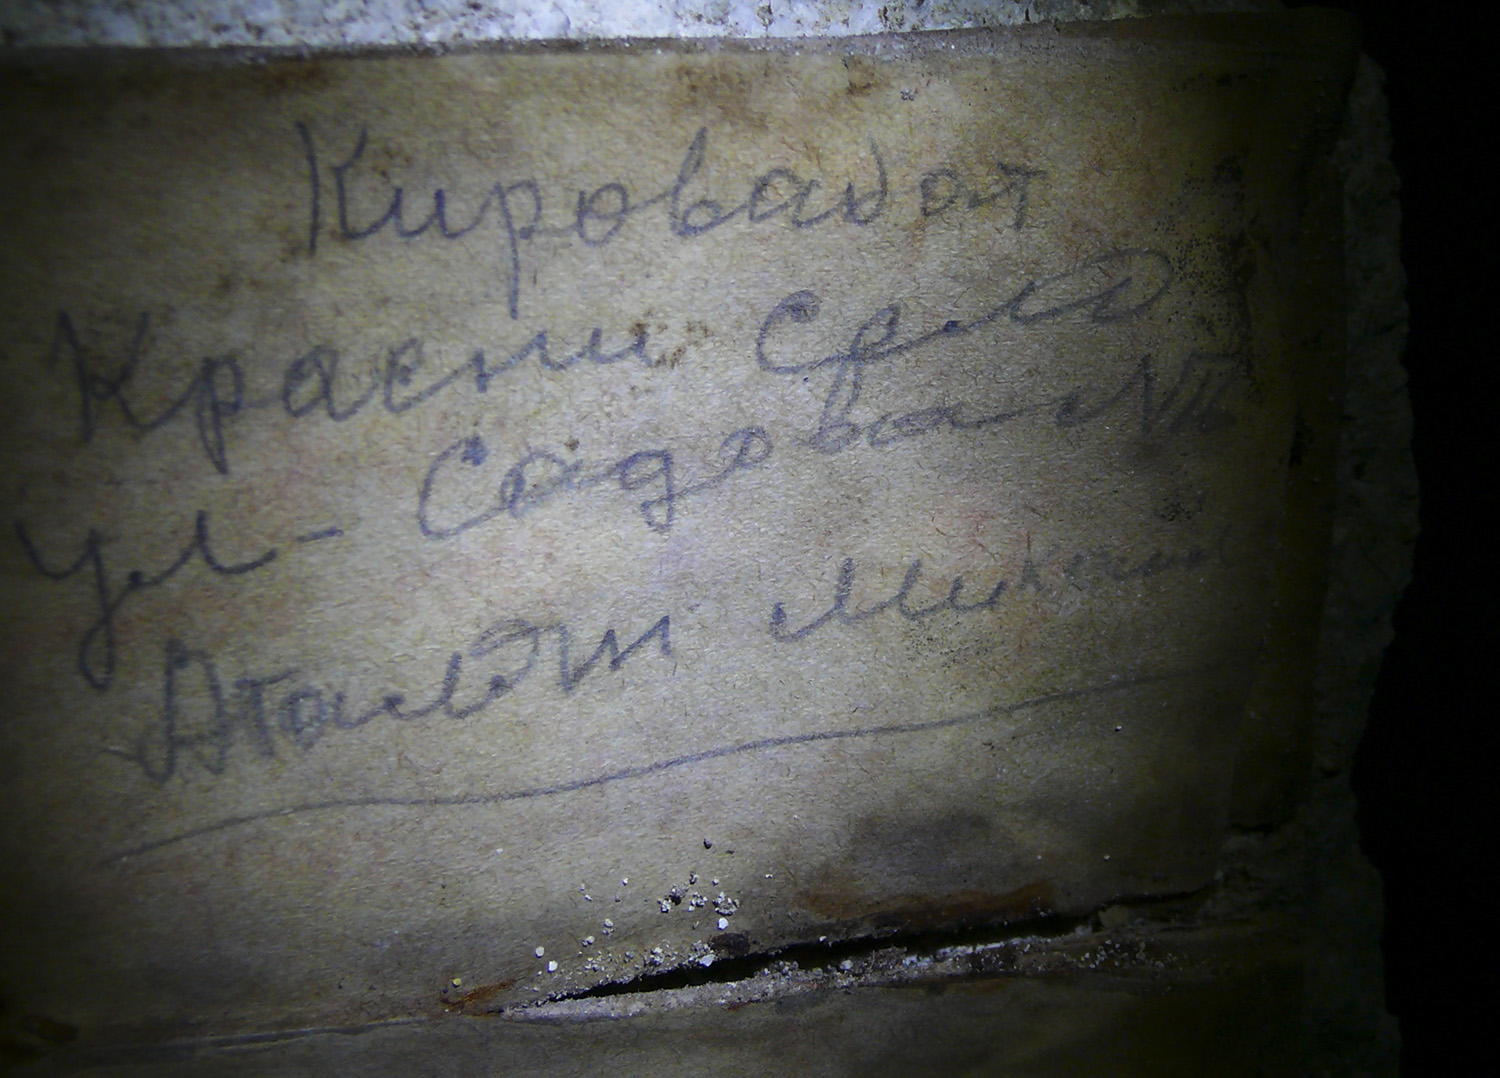 Кировабат
Красни Село
ул - Садовая №
Аталян Михаил